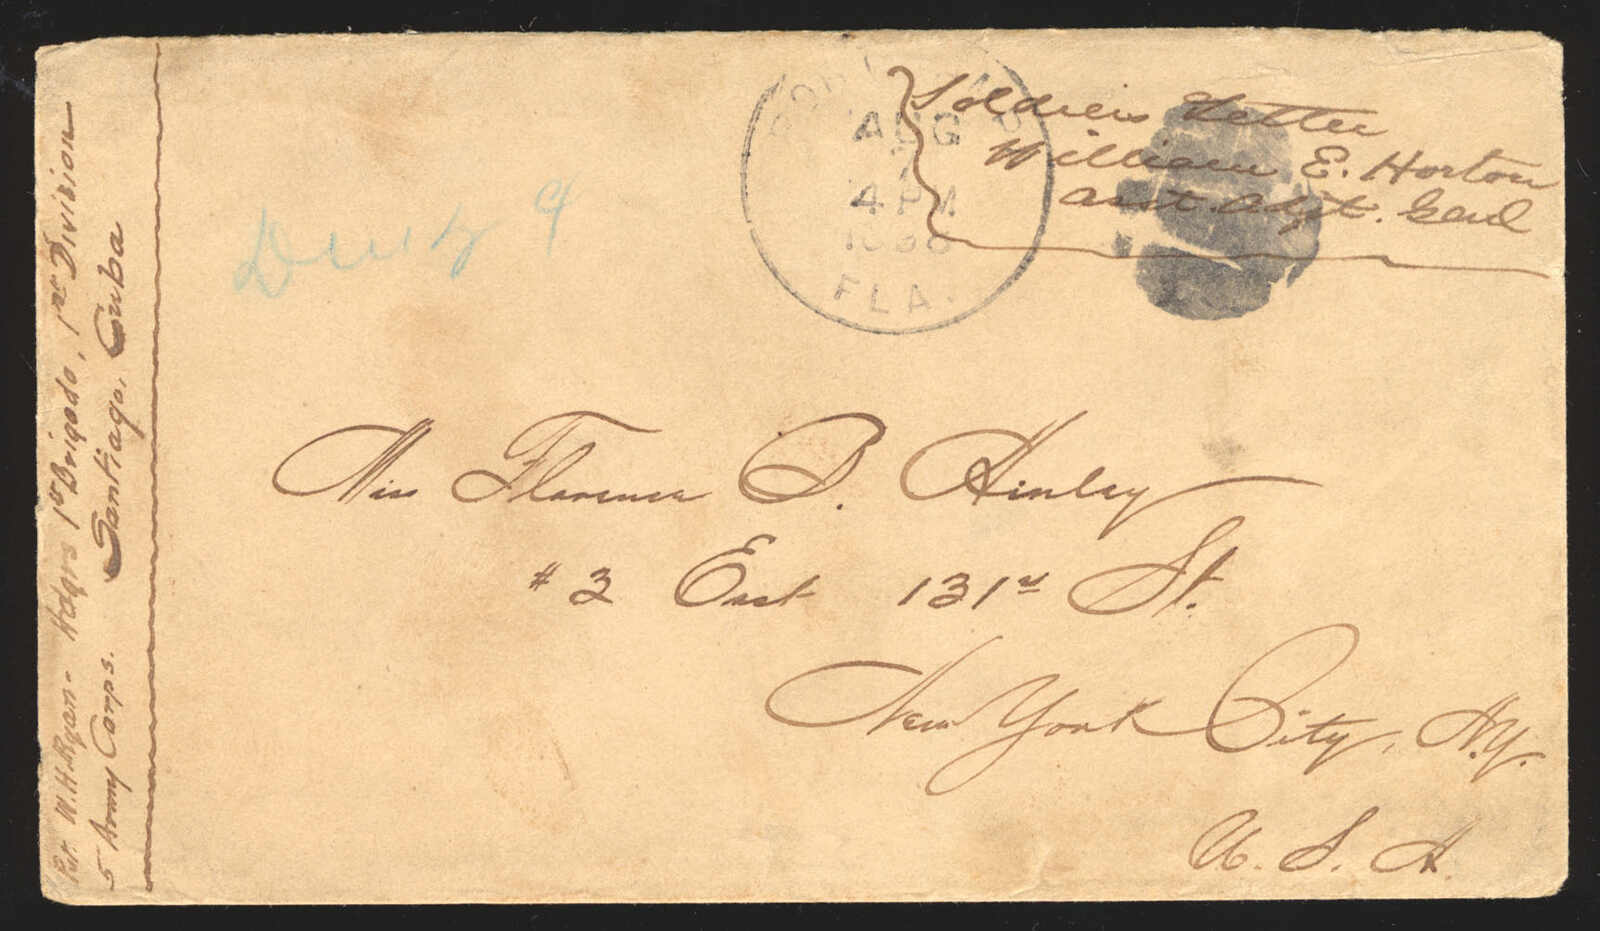 Pvt. W.H. Ryan - Hdqrs 1st Brigade, 1st Division
5 Army Corps. Santiago, Cuba
AUG
4 PM
FLA.
Soldiers Letter
William E. Horton
Asst. Adjt. Genl
Miss Florence B. Hinley
# 3 East 131st St.
New York City, N.Y.
U. S. A.